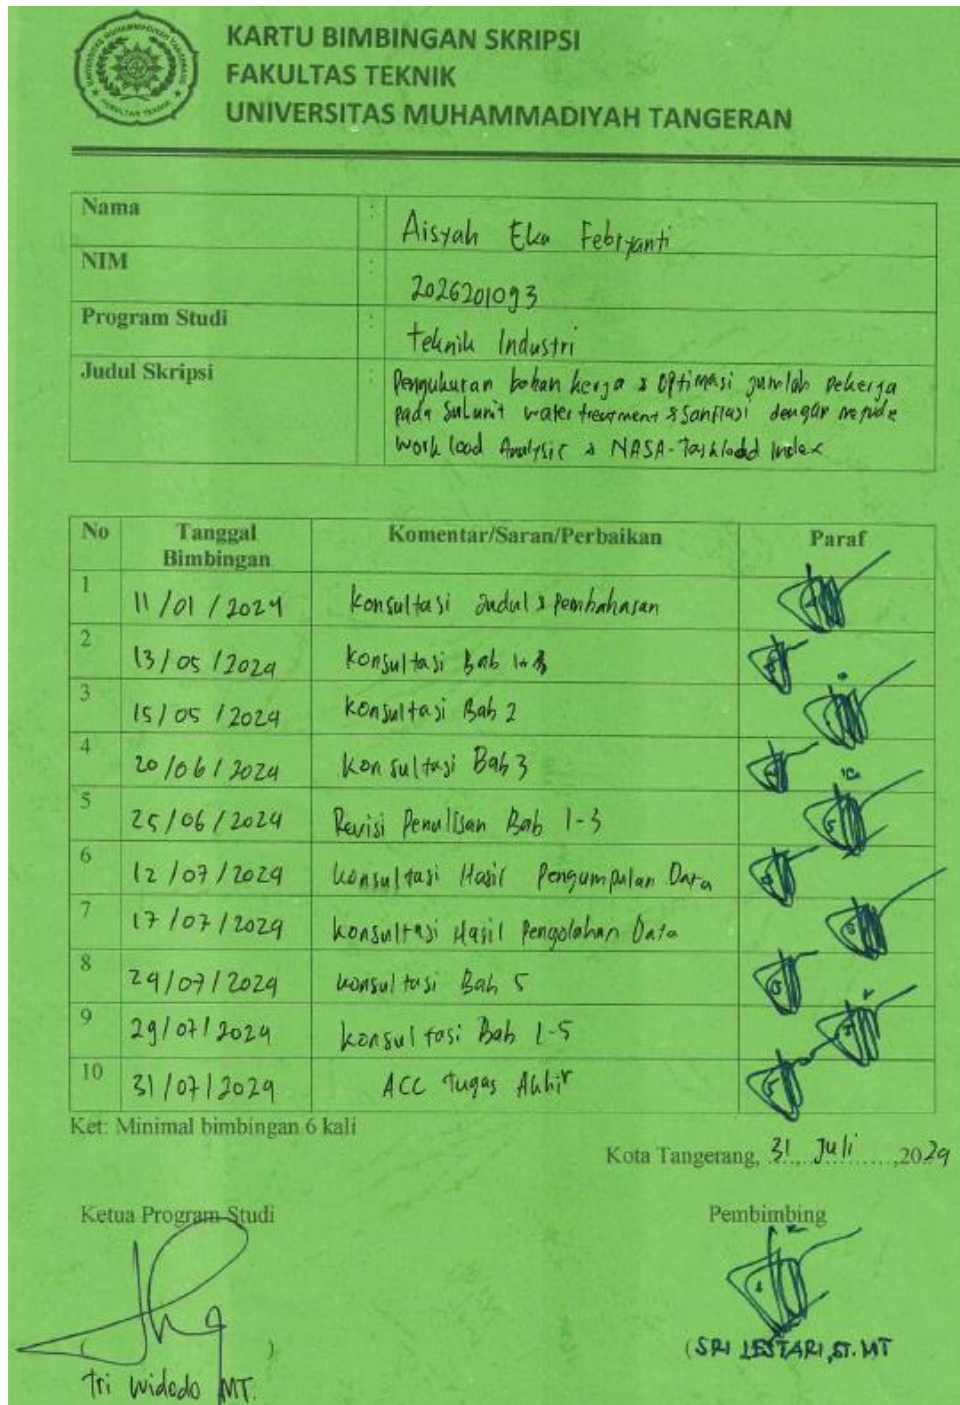 KARTU BIMBINGAN SKRIPSI
FAKULTAS TEKNIK
UNIVERSITAS MUHAMMADIYAH TANGERAN
Nama : Aisyah Eka Febryanti
NIM : 2026201093
Program Studi : Teknik Industri
Judul Skripsi : Pengukuran beban kerja & Optimasi jumlah pekerja
pada Subunit water treatment & Sanitasi dengan metode
Work load Analysis & NASA-Taskload Index
No Tanggal Bimbingan Komentar/Saran/Perbaikan Paraf
1 11/01/2024 Konsultasi Judul & Pembahasan
2 13/05/2024 Konsultasi Bab 1
3 15/05/2024 Konsultasi Bab 2
4 20/06/2024 Konsultasi Bab 3
5 25/06/2024 Revisi Penulisan Bab 1-3
6 12/07/2024 Konsultasi Hasil Pengumpulan Data
7 17/07/2024 Konsultasi Hasil Pengolahan Data
8 24/07/2024 Konsultasi Bab 5
9 29/07/2024 Konsultasi Bab 1-5
10 31/07/2024 ACC Tugas Akhir
Ket: Minimal bimbingan 6 kali
Kota Tangerang, 31 Juli 2024
Ketua Program Studi Pembimbing
(SRI LESTARI, ST. MT
Tri Widodo MT. )